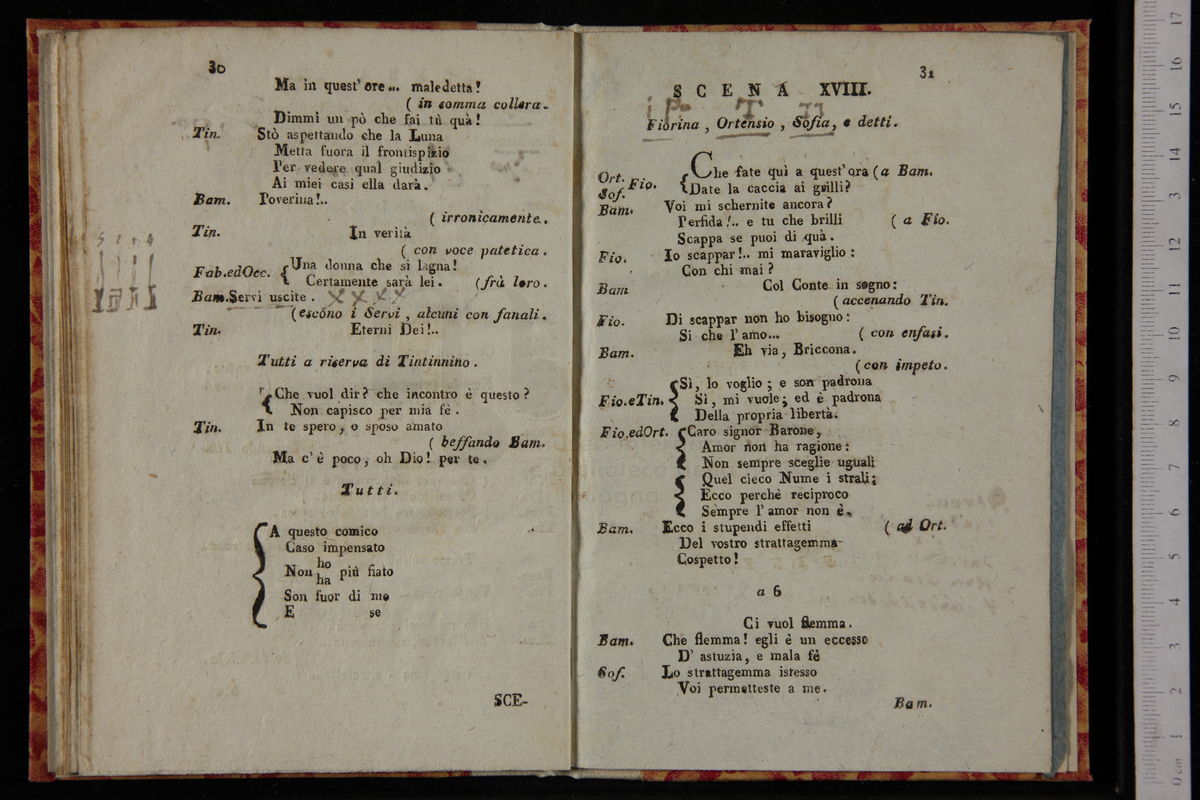 30
Ma in quest' ore... maledetta!
( in somma collera.
Dimmi un pò che fai tù quà!
Tin. Stò aspettando che la Luna
Metta fuora il frontispizio
Per vedere qual giudizio
Ai miei casi ella darà.
Bam. Poverina!..
( irronicamente.
Tin. In verità
( con voce patetica.
Fab.edOec. { Una donna che si lagna!
Certamente sarà lei. (frà loro.
Bam. Servi uscite. X X X X
(escono i Servi, alcuni con fanali.
Tin. Eterni Dei!..
Tutti a riserva di Tintinnino.
{ Che vuol dir? che incontro è questo?
Non capisco per mia fè.
Tin. In te spero, o sposo amato
( beffando Bam.
Ma c'è poco, oh Dio! per te.
Tutti.
{ A questo comico
Caso impensato
Non ho più fiato
ha
Son fuor di me
E se
SCE-
31
SCENA XVIII.
Fiorina, Ortensio, Sofia, e detti.
Ort. Fio. { Che fate quì a quest' ora (a Bam.
Sof. Date la caccia ai grilli?
Bam. Voi mi schernite ancora?
Perfida!.. e tu che brilli ( a Fio.
Scappa se puoi di quà.
Fio. Io scappar!.. mi maraviglio:
Con chi mai?
Bam Col Conte in sogno:
(accenando Tin.
Fio. Di scappar non ho bisogno:
Si che l'amo... ( con enfasi.
Bam. Eh via, Briccona.
(con impeto.
Fio.eTin. { Sì, lo voglio; e son padrona
Sì, mi vuole; ed è padrona
Della propria libertà.
Fio.edOrt. { Caro signor Barone,
Amor non ha ragione:
Non sempre sceglie uguali
Quel cieco Nume i strali;
Ecco perchè reciproco
Sempre l'amor non è.
Bam. Ecco i stupendi effetti ( ad Ort.
Del vostro strattagemma
Cospetto!
a 6
Ci vuol flemma.
Bam. Che flemma! egli è un eccesso
D' astuzia, e mala fè
Sof. Lo strattagemma istesso
Voi permetteste a me.
Bam.